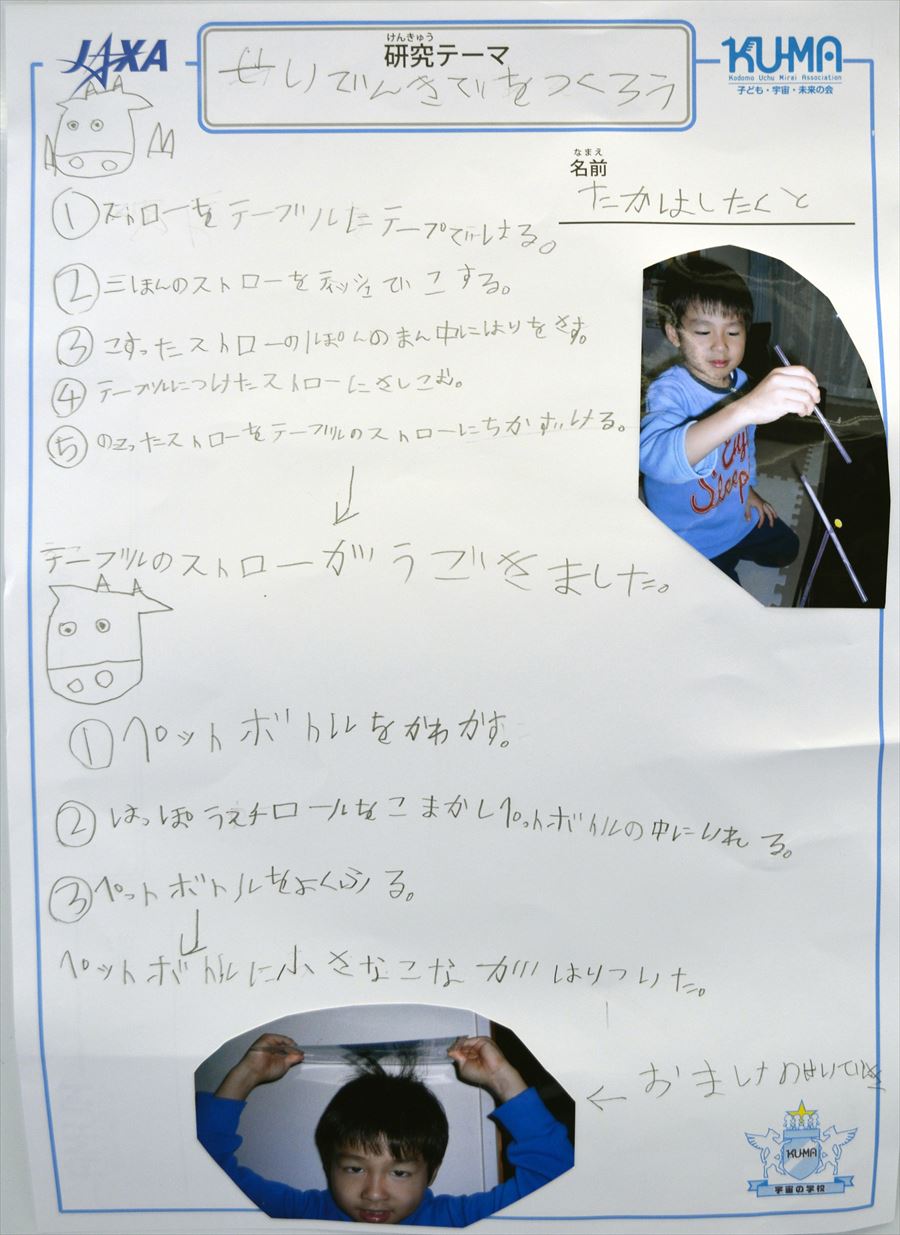 JAXA
けんきゅう
研究テーマ
せいでんきでをつくろう
KU-MA
Kodomo Uchu Mirai Association
子ども・宇宙・未来の会
なまえ
名前
たかはしたくと
①ストローをテーブルにテープではる。
②三ぼんのストローをティッシュでこする。
③こすったストローの1ぽんのまん中にはりをさす。
④テーブルにつけたストローにさしこむ。
⑤のこったストローをテーブルのストローにちかずける。
↓
テーブルのストローがうごきました。
①ペットボトルをかわかす。
②はっぽうスチロールをこまかしペットボトルの中にいれる。
③ペットボトルをよくふる。
↓
ペットボトルに小さなこながはりついた。
←おまけのせいでんき
KU-MA
宇宙の学校